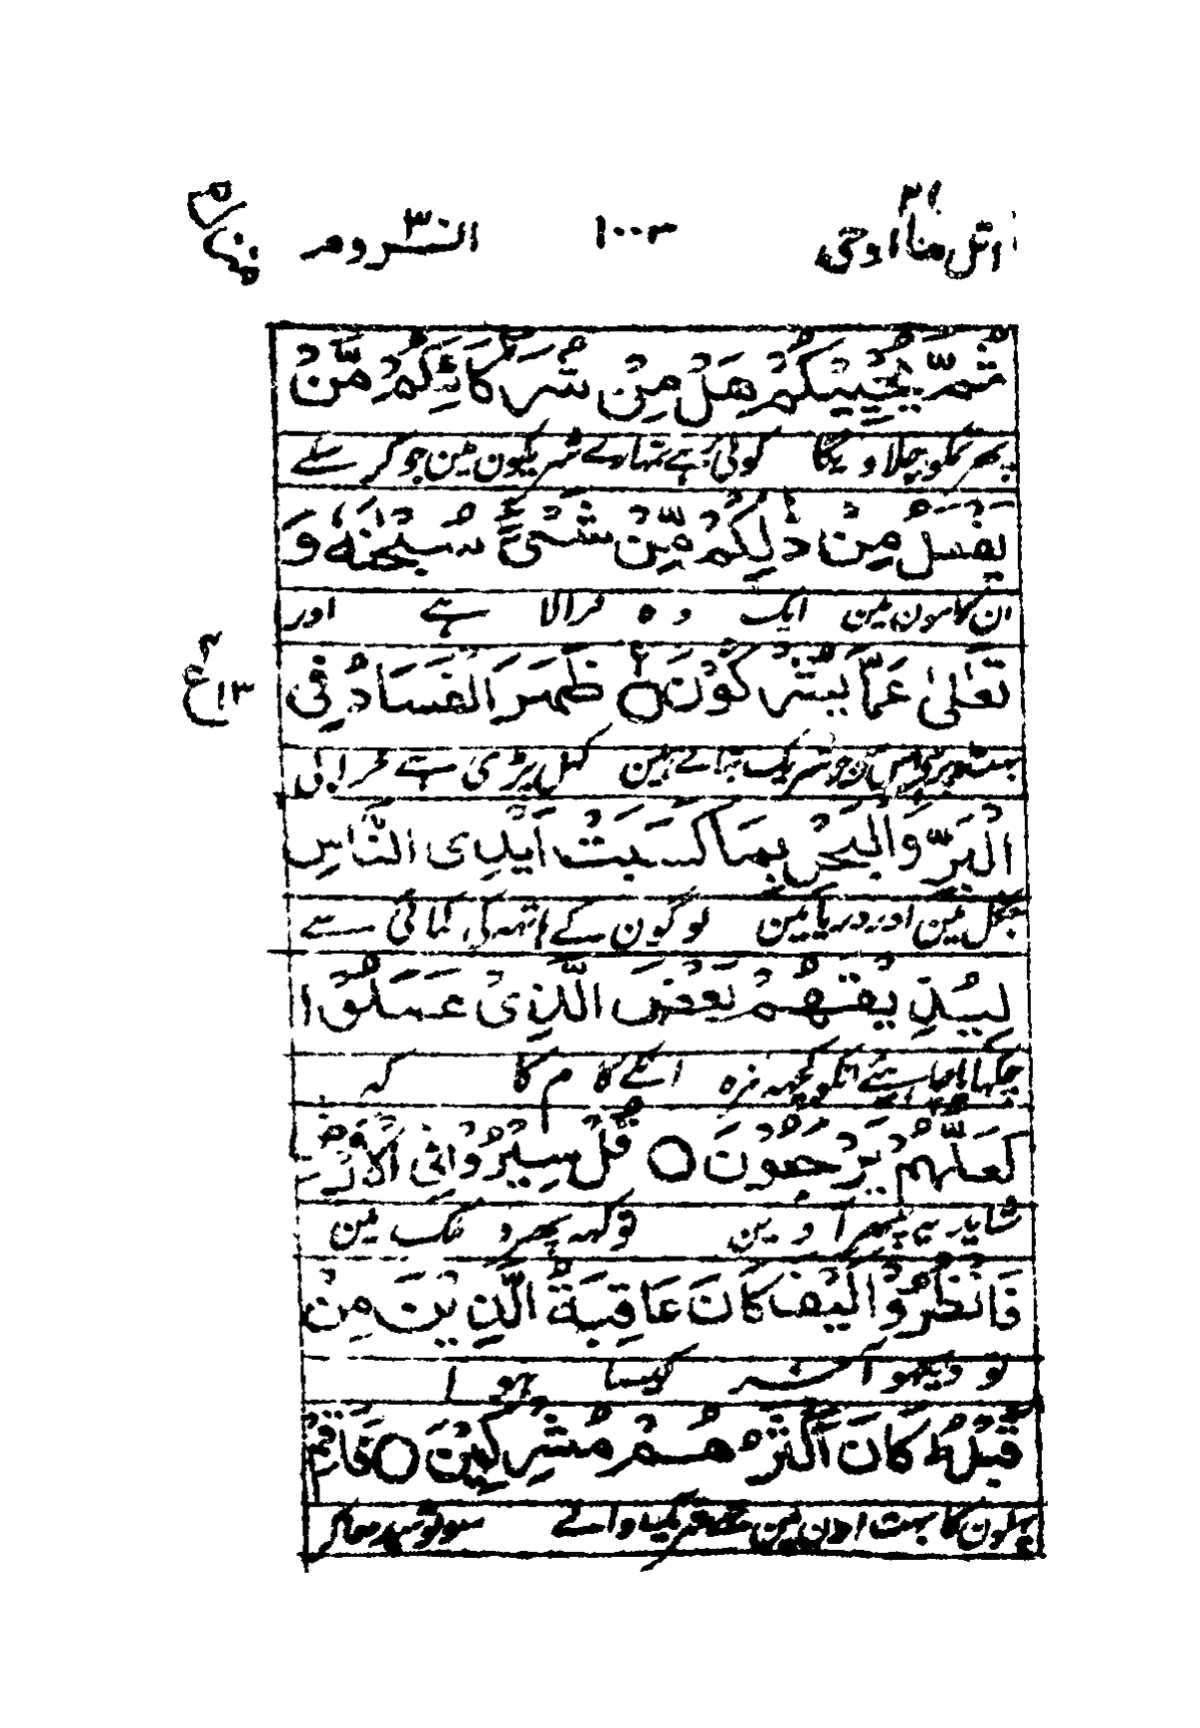 اتل ما اوحی ۲۱ ۱۰۰۳ الروم ۳۰
ثُمَّ يُحْيِيْكُمْ هَلْ مِنْ شُرَكَائِكُمْ مَّنْ
پھر تمکو جلاویگا کوئی ہے تمہارے شریکون مین جو کر سکے
يَفْعَلُ مِنْ ذٰلِكُمْ مِّنْ شَىْءٍ سُبْحٰنَهٗ وَ
ان کامون مین ایک وہ نرالا ہے اور
تَعٰلٰى عَمَّا يُشْرِكُوْنَ ۝ ظَهَرَ الْفَسَادُ فِى
بہت اوپر ہے اس سے جو شریک بتاتے ہین کھل پڑی ہے خرابی
ع ۱۳
الْبَرِّ وَالْبَحْرِ بِمَا كَسَبَتْ اَيْدِى النَّاسِ
جنگل مین اور دریا مین لوگون کے ہاتھہ کی کمائی سے
لِيُذِيْقَهُمْ بَعْضَ الَّذِىْ عَمِلُوْا
چکھایا چاہئے انکو کچھہ مزہ انکے کام کا کہ
لَعَلَّهُمْ يَرْجِعُوْنَ ۝ قُلْ سِيْرُوْا فِى الْاَرْضِ
شاید یہ پھر آوین تو کہہ پھرو ملک مین
فَانْظُرُوْا كَيْفَ كَانَ عَاقِبَةُ الَّذِيْنَ مِنْ
تو دیکھو آخر کیسا ہوا
قَبْلُ ؕ كَانَ اَكْثَرُهُمْ مُشْرِكِيْنَ ۝ فَاَقِمْ
پہلون کا بہت اون مین تھے شریک والے سو تو سیدھا کر